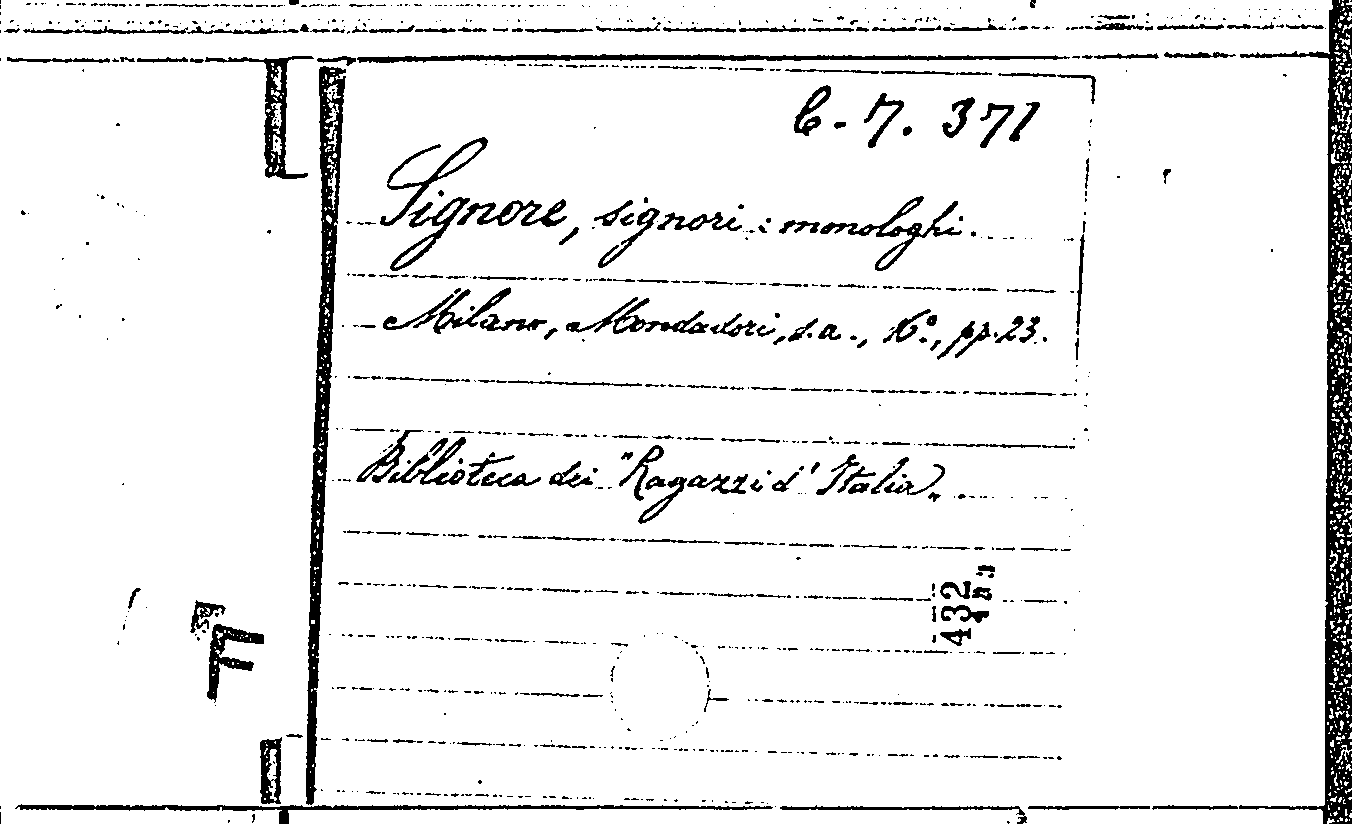 C-7. 371
Signore, signori: monologhi.
Milano, Mondadori, s.a., 16°, pp. 23.
Biblioteca dei "Ragazzi d'Italia„.
432
F